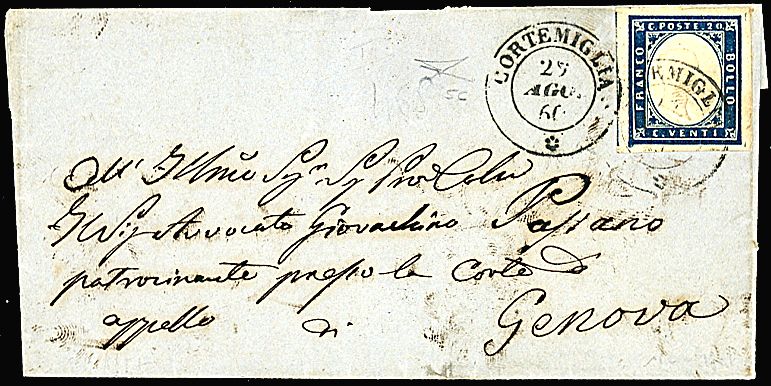 CORTEMIGLIA
25
AGO.
60
C. POSTE. 20
FRANCO
BOLLO
C. VENTI
EMIGL
Al Illmo Sigr
Il Sig Avvocato Giovachino Passano
patrocinante presso la Corte d
appello di Genova